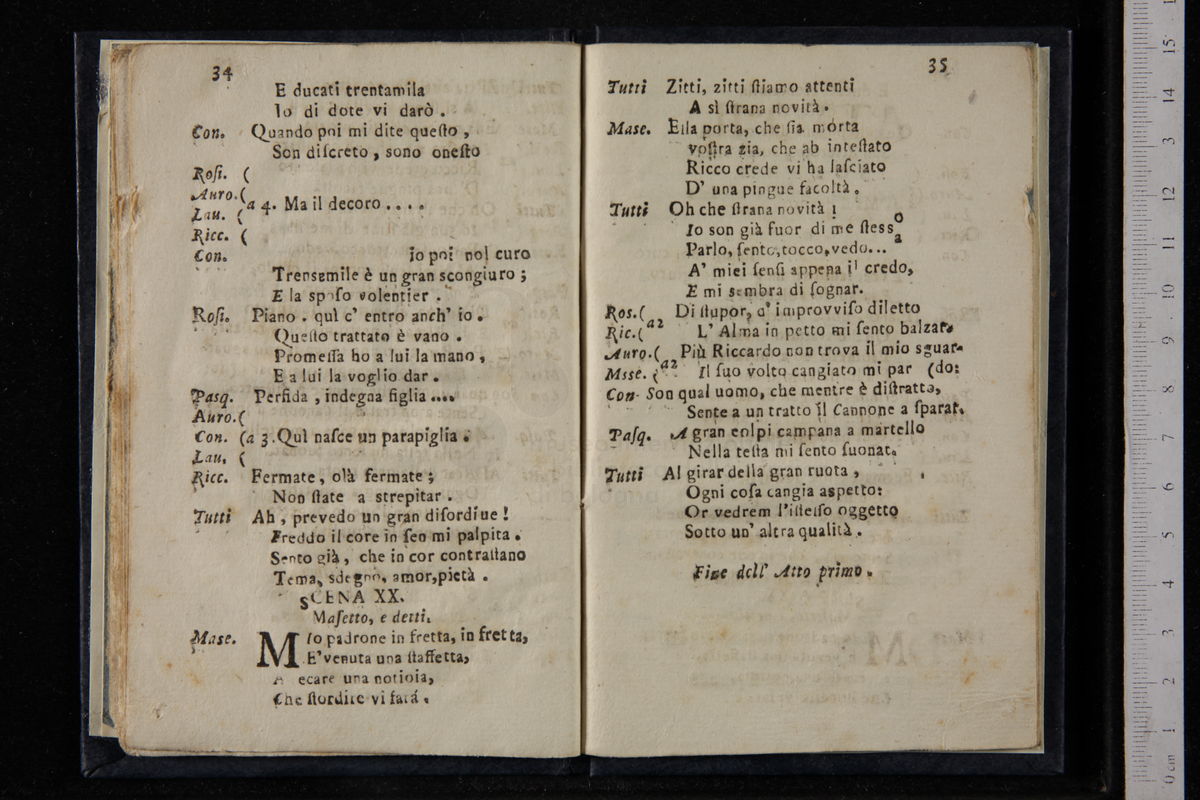 34
E ducati trentamila
Io di dote vi darò .
Con. Quando poi mi dite queſto ,
Son diſcreto , sono oneſto
Roſi. (
Auro. (
a 4. Ma il decoro . . . .
Lau. (
Ricc. (
Con. io poi nol curo
Trensemile è un gran scongiuro ;
E la spoſo volentier .
Roſi. Piano . quì c' entro anch' io .
Queſto trattato è vano .
Promeſſa ho a lui la mano ,
E a lui la voglio dar .
Pasq. Perfida , indegna figlia ....
Auro. (
Con. (a 3. Quì naſce un parapiglia .
Lau. (
Ricc. Fermate , olà fermate ;
Non ſtate a strepitar .
Tutti Ah , prevedo un gran diſordiue !
Freddo il core in ſen mi palpita .
Sento già , che in cor contraſtano
Tema, sdegno, amor,pietà .
SCENA XX.
Maſetto, e detti.
Mase. MIo padrone in fretta, in fretta,
E' venuta una ſtaffetta,
A ecare una notioia,
Che ſtordire vi fará .
35
Tutti Zitti, zitti ſtiamo attenti
A sì ſtrana novità .
Mase. Ella porta, che ſia morta
voſtra zia, che ab inteſtato
Ricco crede vi ha laſciato
D' una pingue facoltà .
Tutti Oh che ſtrana novità !
Io son già fuor di me ſtesso
Parlo, ſento, tocco, vedo...
A' miei ſenſi appena il credo,
E mi sembra di ſognar.
Ros. ( Di ſtupor, d' improvviſo diletto
a2
Ric. ( L' Alma in petto mi ſento balzar.
Auro. ( Più Riccardo non trova il mio sguar-
a2
Msse. ( Il ſuo volto cangiato mi par (do:
Con- Son qual uomo, che mentre è diſtratto,
Sente a un tratto il Cannone a ſparat.
Paſq. A gran eolpi campana a martello
Nella teſta mi ſento ſuonat.
Tutti Al girar della gran ruota ,
Ogni coſa cangia aspetto:
Or vedrem l'iſteſſo oggetto
Sotto un' altra qualità .
Fine dell' Atto primo .